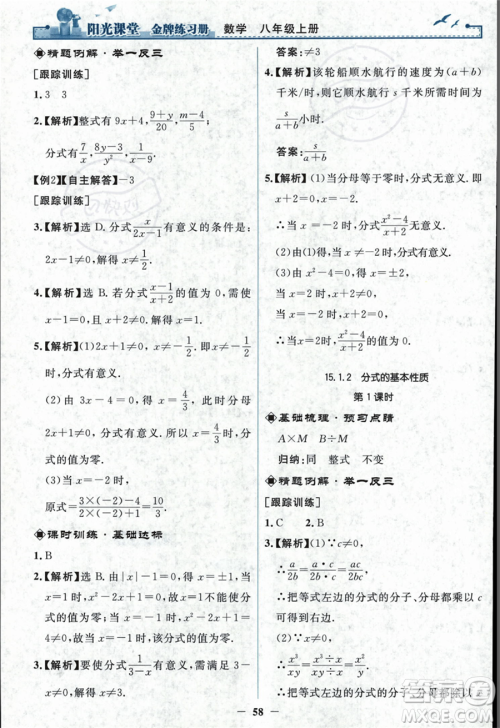 阳光课堂 金牌练习册 数学 八年级上册
精题例解·举一反三
[跟踪训练]
1.3 3
2.【解析】整式有 9x+4, (9+y)/20, (m-4)/5
分式有 7/x, (8y-3)/y², 1/(x-9).
【例2】【自主解答】-3
[跟踪训练]
3.【解析】选 D.分式 x/(2x-1) 有意义的条件是:
2x-1≠0,解得 x≠1/2.
4.【解析】选 B.若分式 (x-1)/(x+2) 的值为 0,需使
x-1=0,且 x+2≠0,解得 x=1.
5.【解析】(1)由 2x-1≠0,得 x≠1/2,∴当 x≠1/2
时,分式有意义.
(2)由 3x-4=0,得 x=4/3,又当 x=4/3 时,
2x-1≠0,分式有意义,∴当 x=4/3 时,分式
的值为零.
(3)当 x=-2 时,
原式=(3×(-2)-4)/(2×(-2)-1)=(-10)/(-5)=2.
课时训练·基础达标
1.B
2.【解析】选 D.由|x|-1=0,得 x=±1.当
x=1时,x²-2x+1=0,不合题意;当x=
-1时,x²-2x+1=4≠0,∴x=-1时分式
的值为零.
3.【解析】要使分式有意义,必须满足 3-x≠
0,即 x≠3.
答案:≠3
4.【解析】该轮船顺水航行的速度为(a+b)
千米/时,则顺水航行 s 千米所需时间为
s/(a+b)小时.
答案:s/(a+b)
5.【解析】(1)当分母等于零时,分式无意义,
即 x+2=0,
∴x=-2.
∴当 x=-2 时,分式 (x²-4)/(x+2) 无意义.
(2)由(1)得,当 x≠-2 时,分式有意义.
(3)由题意得 x+2≠0,
∴x≠-2.
由 x²-4=0,得 x=±2.
∴当 x=2 时,分式 (x²-4)/(x+2) 的值为零.
15.1.2 分式的基本性质
第 1 课时
基础梳理·预习点睛
A×M B÷M
归纳:同 整式 不变
精题例解·举一反三
[跟踪训练]
1.C 2.B
3.【解析】(1)∵c≠0,
∴a/2b=(a·c)/(2b·c)=ac/2bc,
∴把等式左边的分式的分子、分母都乘以 c
可得到右边.
(2)∵x≠0,
∴x³/xy=(x³÷x)/(xy÷x)=x²/y
∴把等式左边的分式的分子、分母都除以
58